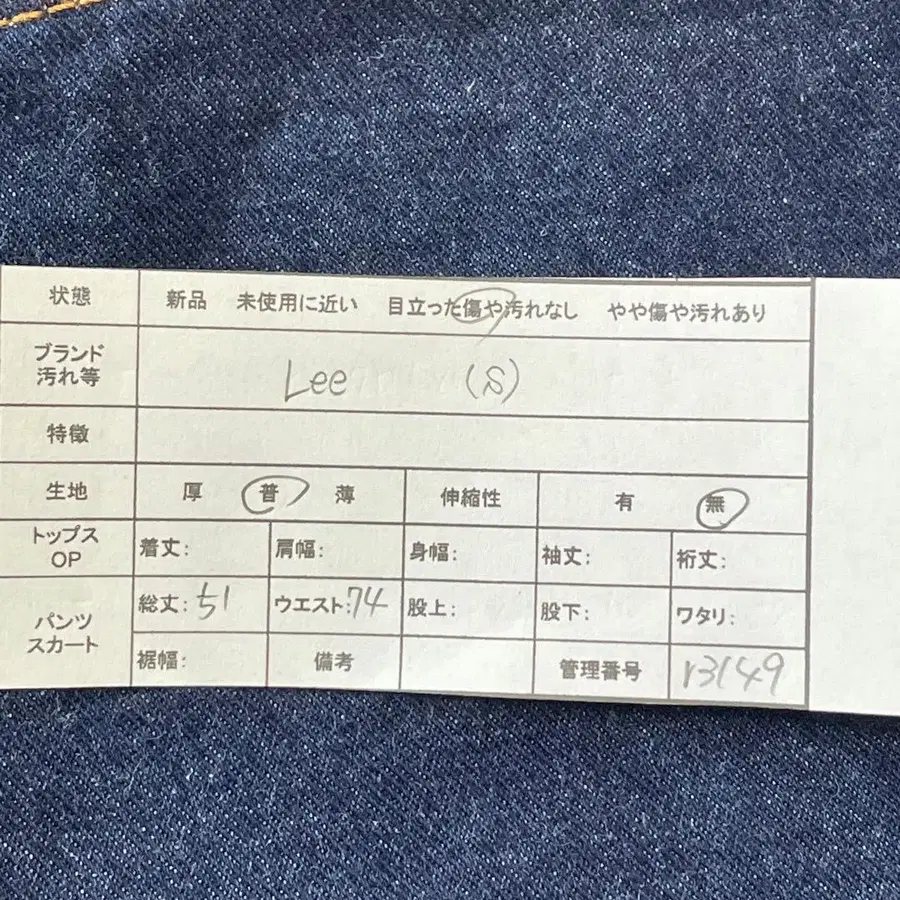 状態 新品 未使用に近い 目立った傷や汚れなし やや傷や汚れあり
ブランド
汚れ等 Lee (S)
特徴
生地 厚 普 薄 伸縮性 有 無
トップス
OP 着丈: 肩幅: 身幅: 袖丈: 裄丈:
パンツ
スカート 総丈:51 ウエスト:74 股上: 股下: ワタリ:
裾幅: 備考 管理番号 r3149